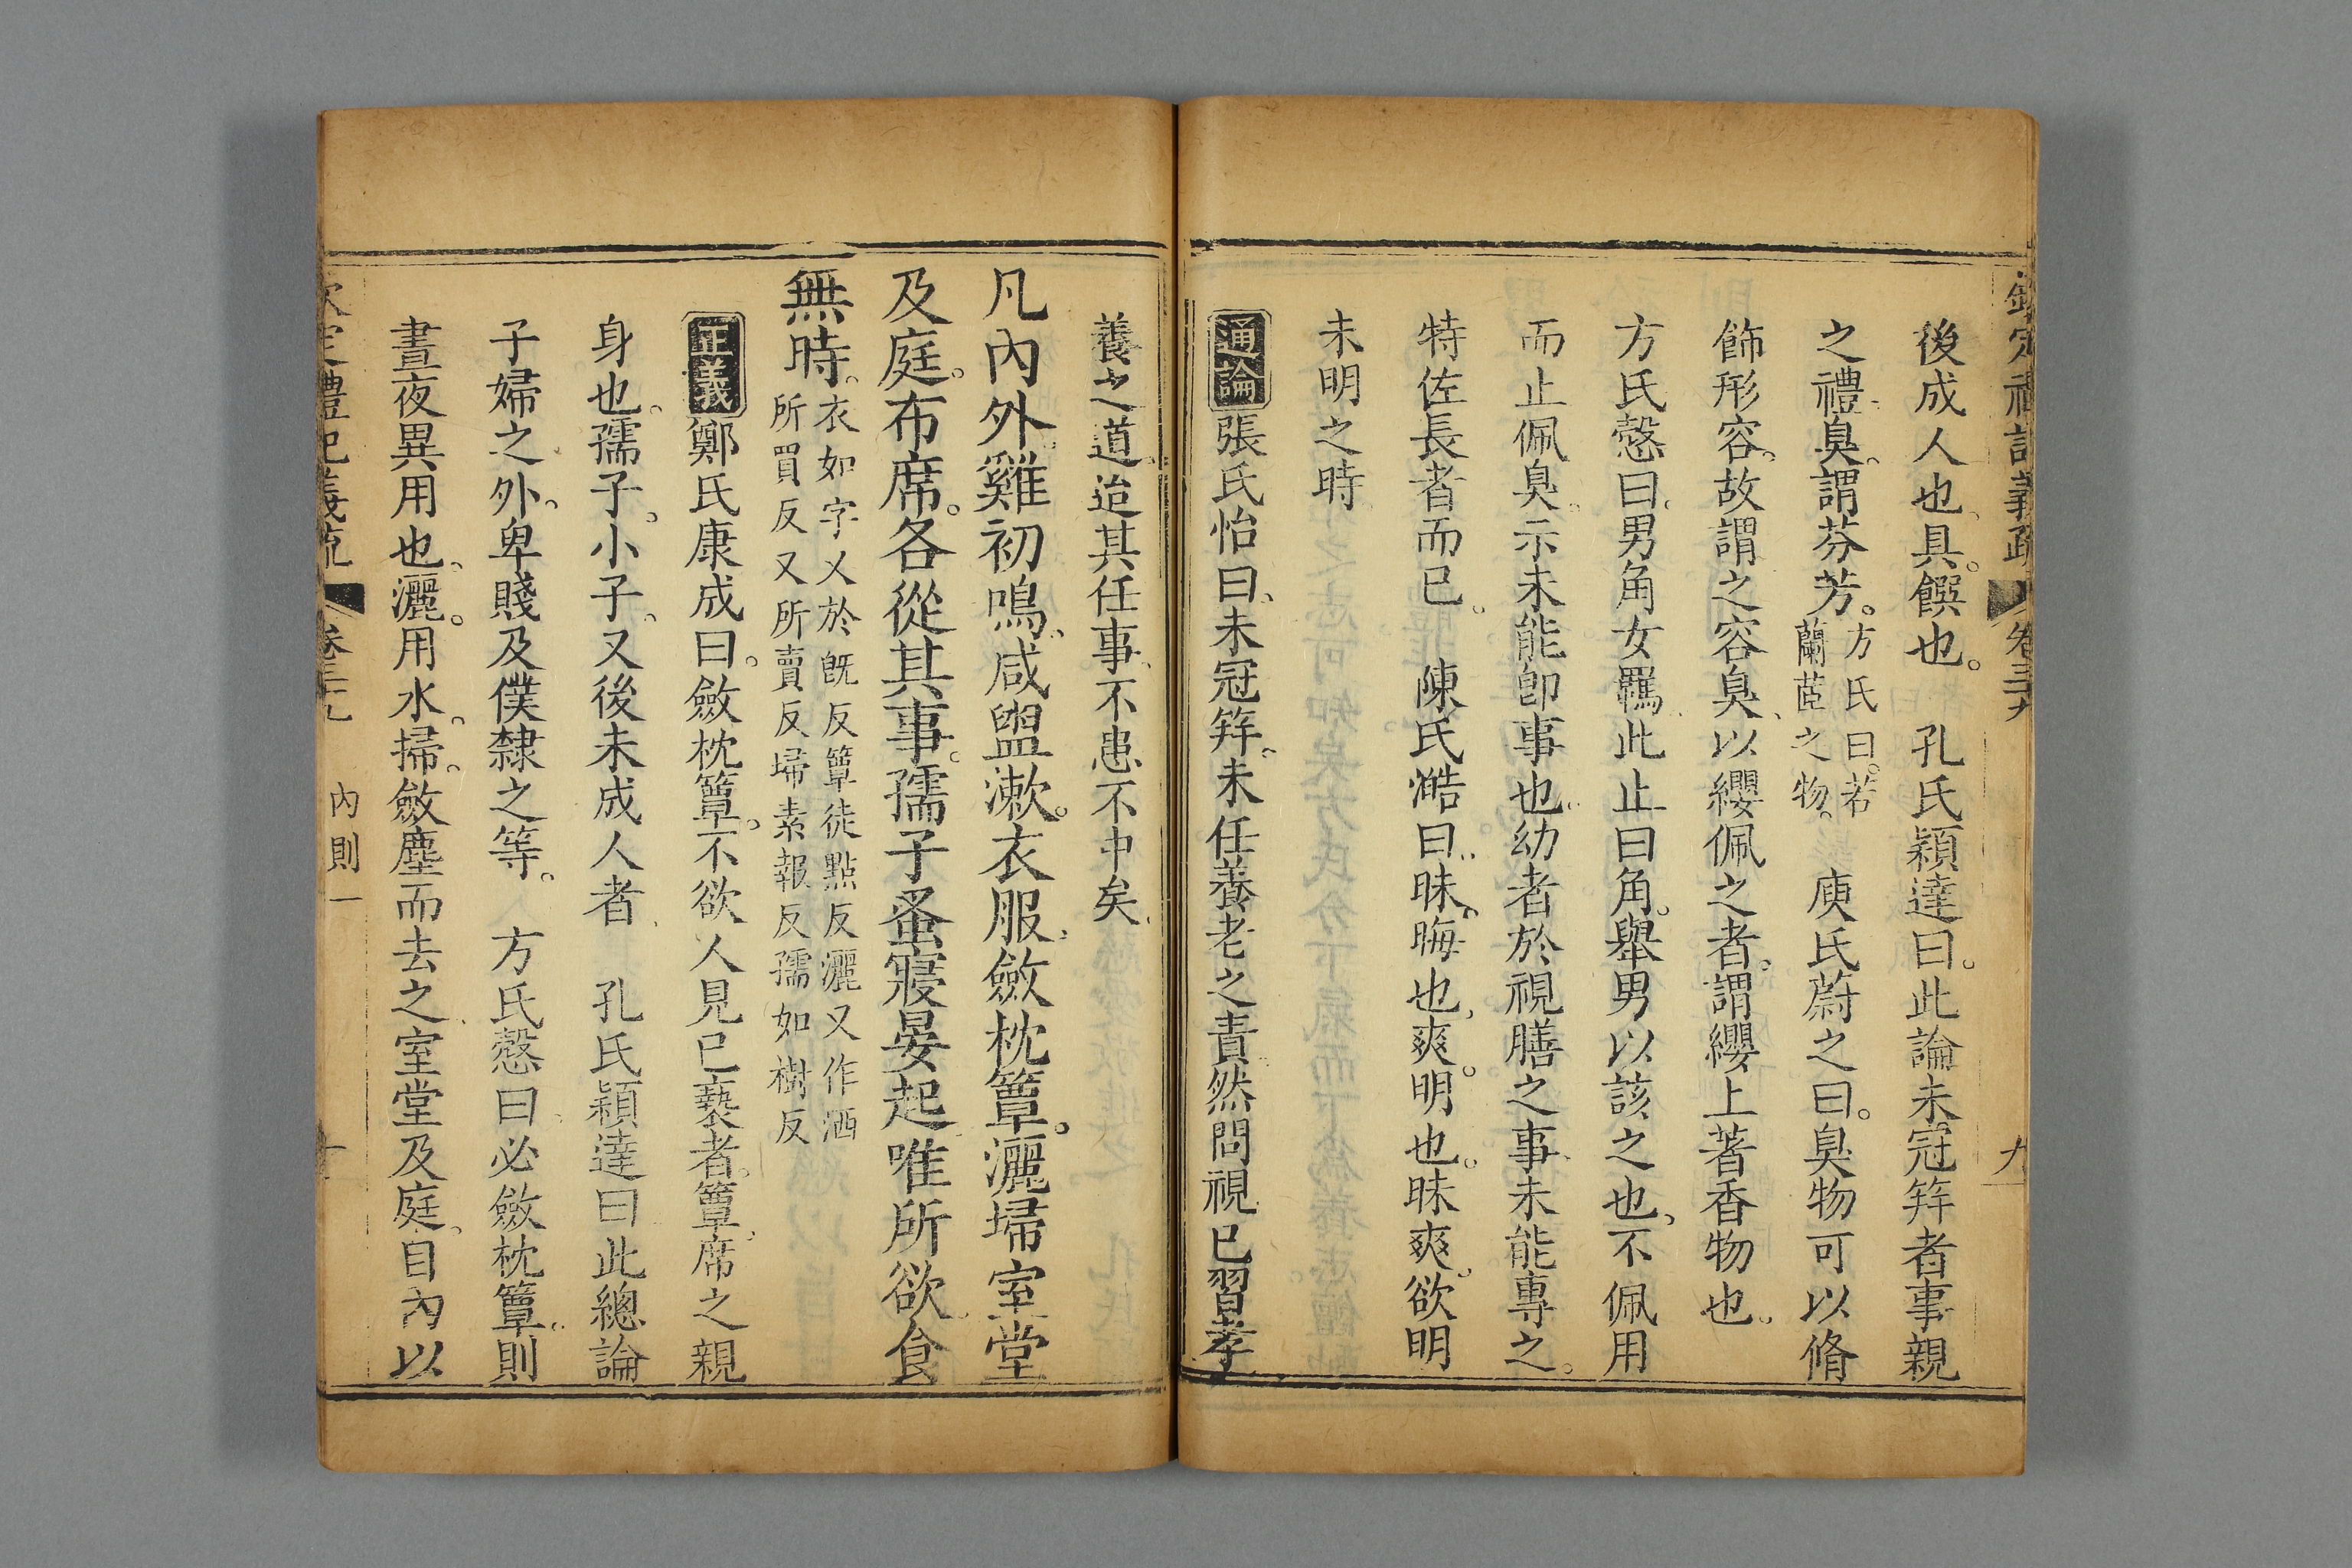 欽定禮記義疏 卷三十九 九
後成人也具饌也。 孔氏穎達曰。此論未冠笄者事親
之禮臭。謂芬芳。方氏曰。若蘭茝之物。 庾氏蔚之曰。臭物可以脩
飾形容。故謂之容臭、以纓佩之者。謂纓上著香物也。
方氏慤曰。男角女羈此止曰角。舉男以該之也、不佩用
而止佩臭。示未能卽事也。幼者於視膳之事未能專之。
特佐長者而已。 陳氏澔曰。昧、晦也、爽。明也。昧爽。欲明
未明之時
通論張氏怡曰、未冠笄。未任養老之責然問視已習孝
養之道迨其任事、不患不中矣、
凡內外雞初鳴、咸盥漱。衣服、斂枕簟。灑埽室堂
及庭。布席。各從其事。孺子蚤寢晏起唯所欲食
無時。衣如字又於旣反簟徒點反灑又作洒
所買反又所賣反埽素報反孺如樹反
正義鄭氏康成曰。斂枕簟。不欲人見已褻者。簟、席之親
身也。孺子。小子、又後未成人者 孔氏穎達曰此總論
子婦之外。卑賤及僕隸之等。 方氏慤曰必斂枕簟。則
晝夜異用也、灑。用水。掃。斂塵而去之室堂及庭、自內以
欽定禮記義疏 卷三十九 內則一 十